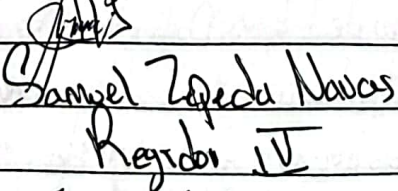 Samuel Zepeda Navas
Regidor IV